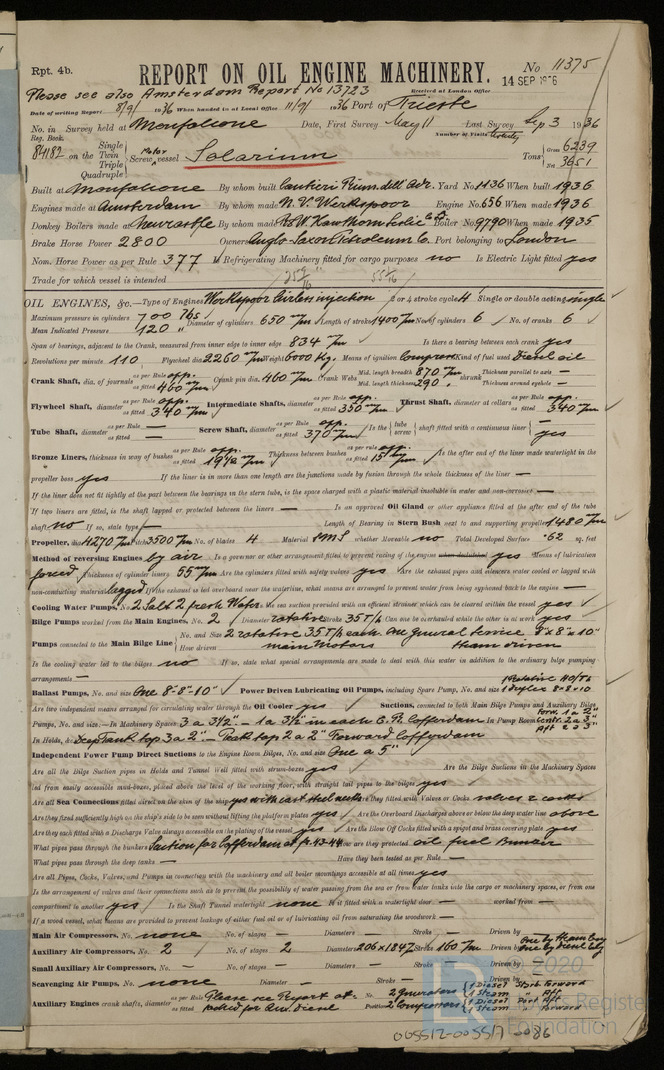 Rpt. 4b.
REPORT ON OIL ENGINE MACHINERY.
No 11375
14 SEP 1936
Please see also Amsterdam Report No 13723
Received at London Office
Date of writing Report 8/9/ 1936 When handed in at Local Office 11/9/ 1936 Port of Trieste
No. in Reg. Book. Survey held at Monfalcone Date, First Survey May 11 Last Survey Sep 3 1936
Number of Visits
84182 on the Single Twin Triple Quadruple Screw Motor vessel Solarium Tons Gross 6239 Net 3651
Built at Monfalcone By whom built Cantieri Riun. dell Adr. Yard No. 1136 When built 1936
Engines made at Amsterdam By whom made N. V. Werkspoor Engine No. 656 When made 1936
Donkey Boilers made at Newcastle By whom made R&W. Hawthorn Leslie & Co Boiler No. 9790 When made 1935
Brake Horse Power 2800 Owners Anglo Saxon Petroleum Co. Port belonging to London
Nom. Horse Power as per Rule 377 Is Refrigerating Machinery fitted for cargo purposes no Is Electric Light fitted yes
Trade for which vessel is intended
OIL ENGINES, &c.—Type of Engines Werkspoor Airless injection 2 or 4 stroke cycle 4 Single or double acting single
Maximum pressure in cylinders 700 lbs Diameter of cylinders 650 m/m Length of stroke 1400 m/m No. of cylinders 6 No. of cranks 6
Mean Indicated Pressure 120 "
Span of bearings, adjacent to the Crank, measured from inner edge to inner edge 834 m/m Is there a bearing between each crank yes
Revolutions per minute 110 Flywheel dia. 2260 m/m Weight 6000 Kg. Means of ignition Compress Kind of fuel used Diesel oil
Crank Shaft, dia. of journals as per Rule app. as fitted 460 m/m Crank pin dia. 460 m/m Crank Webs Mid. length breadth 870 m/m Mid. length thickness 290 " shrunk Thickness parallel to axis — Thickness around eyehole —
Flywheel Shaft, diameter as per Rule app. as fitted 340 m/m Intermediate Shafts, diameter as per Rule app. as fitted 330 m/m Thrust Shaft, diameter at collars as per Rule app. as fitted 340 m/m
Tube Shaft, diameter as per Rule — as fitted — Screw Shaft, diameter as per Rule app. as fitted 370 m/m Is the tube screw shaft fitted with a continuous liner — yes
Bronze Liners, thickness in way of bushes as per Rule app. as fitted 19½ m/m Thickness between bushes as per rule app. as fitted 15 m/m Is the after end of the liner made watertight in the
propeller boss yes If the liner is in more than one length are the junctions made by fusion through the whole thickness of the liner —
If the liner does not fit tightly at the part between the bearings in the stern tube, is the space charged with a plastic material insoluble in water and non-corrosive —
If two liners are fitted, is the shaft lapped or protected between the liners — Is an approved Oil Gland or other appliance fitted at the after end of the tube
shaft no If so, state type — Length of Bearing in Stern Bush next to and supporting propeller 1480 m/m
Propeller, dia. 4270 m/m Pitch 3500 m/m No. of blades 4 Material whether Moveable no Total Developed Surface 62 sq. feet
Method of reversing Engines by air Is a governor or other arrangement fitted to prevent racing of the engine when declutched yes Means of lubrication
forced Thickness of cylinder liners 55 m/m Are the cylinders fitted with safety valves yes Are the exhaust pipes and silencers water cooled or lagged with
non-conducting material lagged If the exhaust is led overboard near the waterline, what means are arranged to prevent water from being syphoned back to the engine —
Cooling Water Pumps, No. 2 Salt 2 fresh Water. Is the sea suction provided with an efficient strainer which can be cleared within the vessel yes
Bilge Pumps worked from the Main Engines, No. 2 Diameter rotative Stroke 35 T/h Can one be overhauled while the other is at work yes
Pumps connected to the Main Bilge Line No. and Size 2 rotative 35 T/h each. One general Service 8"x8"x10" How driven main motors steam driven
Is the cooling water led to the bilges no If so, state what special arrangements are made to deal with this water in addition to the ordinary bilge pumping
arrangements —
Ballast Pumps, No. and size One 8-8-10" Power Driven Lubricating Oil Pumps, including Spare Pump, No. and size 1 Rotative 40/Th 1 duplex 8-8-10
Are two independent means arranged for circulating water through the Oil Cooler yes Suctions, connected to both Main Bilge Pumps and Auxiliary Bilge
Pumps, No. and size:—In Machinery Spaces 3 a 3½" - 1 a 3½ in each C. Pt Cofferdam In Pump Room Forw. 1 a 2" Centr. 2 a 3" Aft 2 a 3"
In Holds, &c. Deep Tank top 3 a 2" - Peak top 2 a 2" Forward Cofferdam
Independent Power Pump Direct Suctions to the Engine Room Bilges, No. and size One a 5"
Are all the Bilge Suction pipes in Holds and Tunnel Well fitted with strum-boxes yes Are the Bilge Suctions in the Machinery Spaces
led from easily accessible mud-boxes, placed above the level of the working floor, with straight tail pipes to the bilges yes
Are all Sea Connections fitted direct on the skin of the ship yes with cast steel necks Are they fitted with Valves or Cocks valves & cocks
Are they fixed sufficiently high on the ship's side to be seen without lifting the platform plates yes Are the Overboard Discharges above or below the deep water line above
Are they each fitted with a Discharge Valve always accessible on the plating of the vessel yes Are the Blow Off Cocks fitted with a spigot and brass covering plate yes
What pipes pass through the bunkers Suction for Cofferdam at fr. 43-44 How are they protected oil fuel Bunker
What pipes pass through the deep tanks — Have they been tested as per Rule —
Are all Pipes, Cocks, Valves, and Pumps in connection with the machinery and all boiler mountings accessible at all times yes
Is the arrangement of valves and their connections such as to prevent the possibility of water passing from the sea or from water tanks into the cargo or machinery spaces, or from one
compartment to another yes Is the Shaft Tunnel watertight none Is it fitted with a watertight door — worked from —
If a wood vessel, what means are provided to prevent leakage of either fuel oil or of lubricating oil from saturating the woodwork —
Main Air Compressors, No. none No. of stages — Diameters — Stroke — Driven by —
Auxiliary Air Compressors, No. 2 No. of stages 2 Diameters 206 x 184 Stroke 160 m/m Driven by One by Steam Eng One by Diesel Eng
Small Auxiliary Air Compressors, No. — No. of stages — Diameters — Stroke — Driven by —
Scavenging Air Pumps, No. none Diameter — Stroke — Driven by —
Auxiliary Engines crank shafts, diameter as per Rule as fitted Please see Report for Aux. Diesel No. 2 Generators 1 Diesel Starb. Forward 1 Steam " Aft
Position 2 Compressors 1 Diesel Port Aft 1 Steam " Forward
© 2020
Lloyd's Register
Foundation
005512-005517-0086